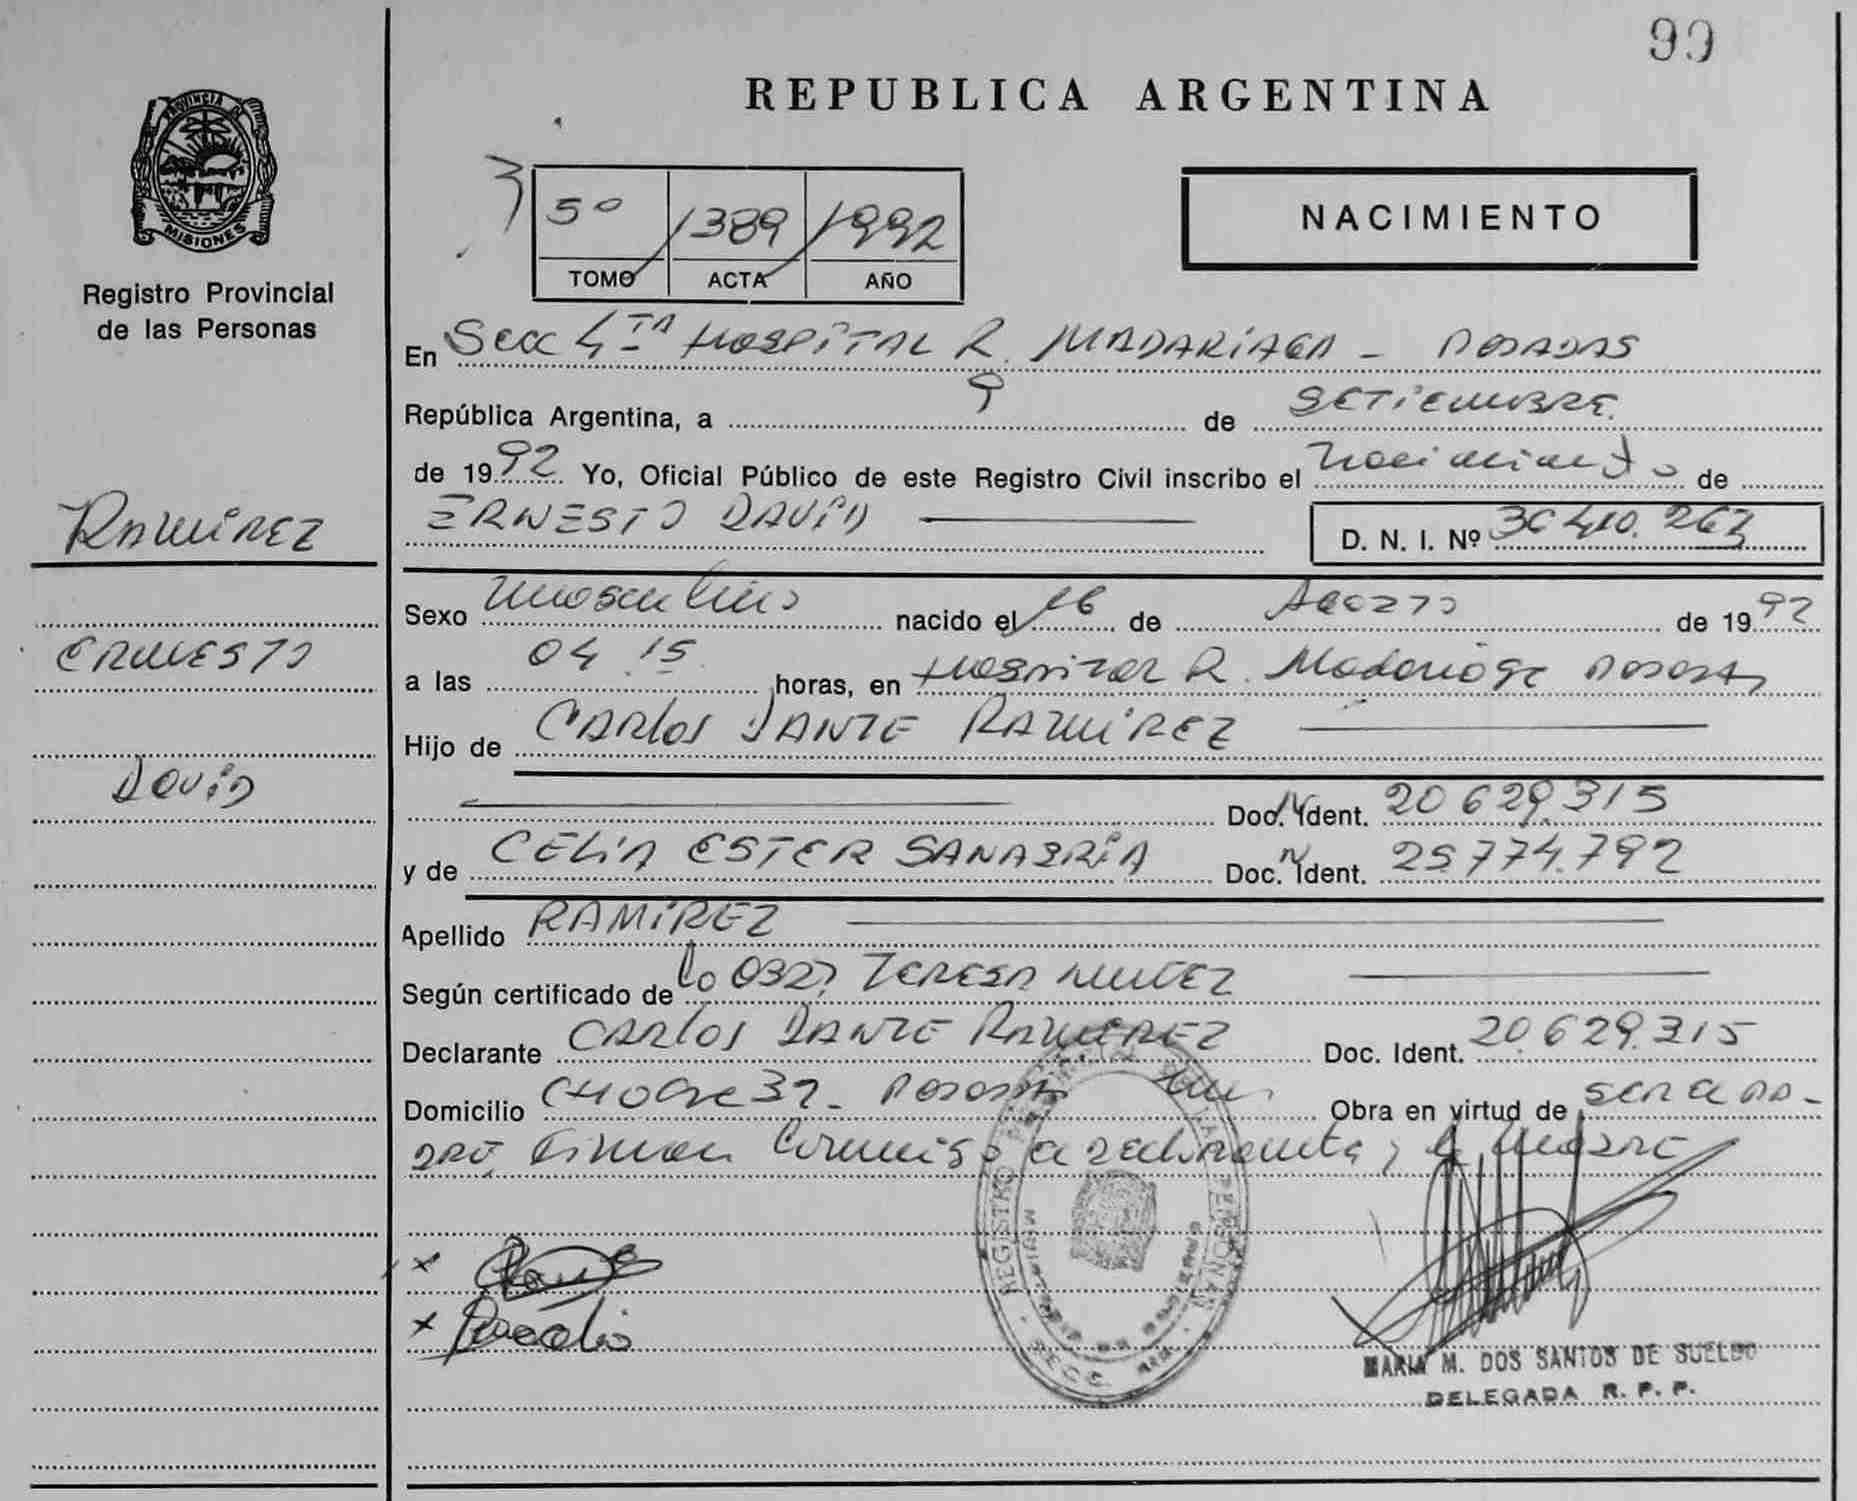 99
REPUBLICA ARGENTINA
PROVINCIA DE
MISIONES
Registro Provincial
de las Personas
5º 1389 1992
TOMO ACTA AÑO
NACIMIENTO
En Secc 4TA HOSPITAL R. MADARIAGA - POSADAS
República Argentina, a 9 de SETIEMBRE
de 1992 Yo, Oficial Público de este Registro Civil inscribo el nacimiento de
ERNESTO DAVID D. N. I. Nº 36 410.263
RAMIREZ
ERNESTO
DAVID
Sexo Masculino nacido el 16 de AGOSTO de 1992
a las 04 15 horas, en Hospital R. Madariaga Posadas
Hijo de CARLOS DANTE RAMIREZ
Doc. Ident. 20 629.315
y de CELIA ESTER SANABRIA Doc. Ident. 25.774.792
Apellido RAMIREZ
Según certificado de TERESA NUÑEZ
Declarante CARLOS DANTE RAMIREZ Doc. Ident. 20.629.315
Domicilio 32 - Posadas Obra en virtud de
Firman Conmigo el declarante y la madre
REGISTRO
SECC.
MARIA M. DOS SANTOS DE SUELDO
DELEGADA R. P. P.